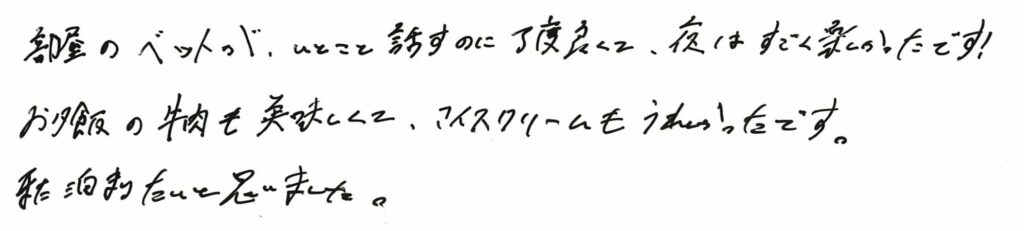 部屋のベットが、いとこと話すのに丁度良くて、夜はすごく楽しかったです!
お夕飯の牛肉も美味しくて、アイスクリームもうれしかったです。
また泊まりたいと思いました。